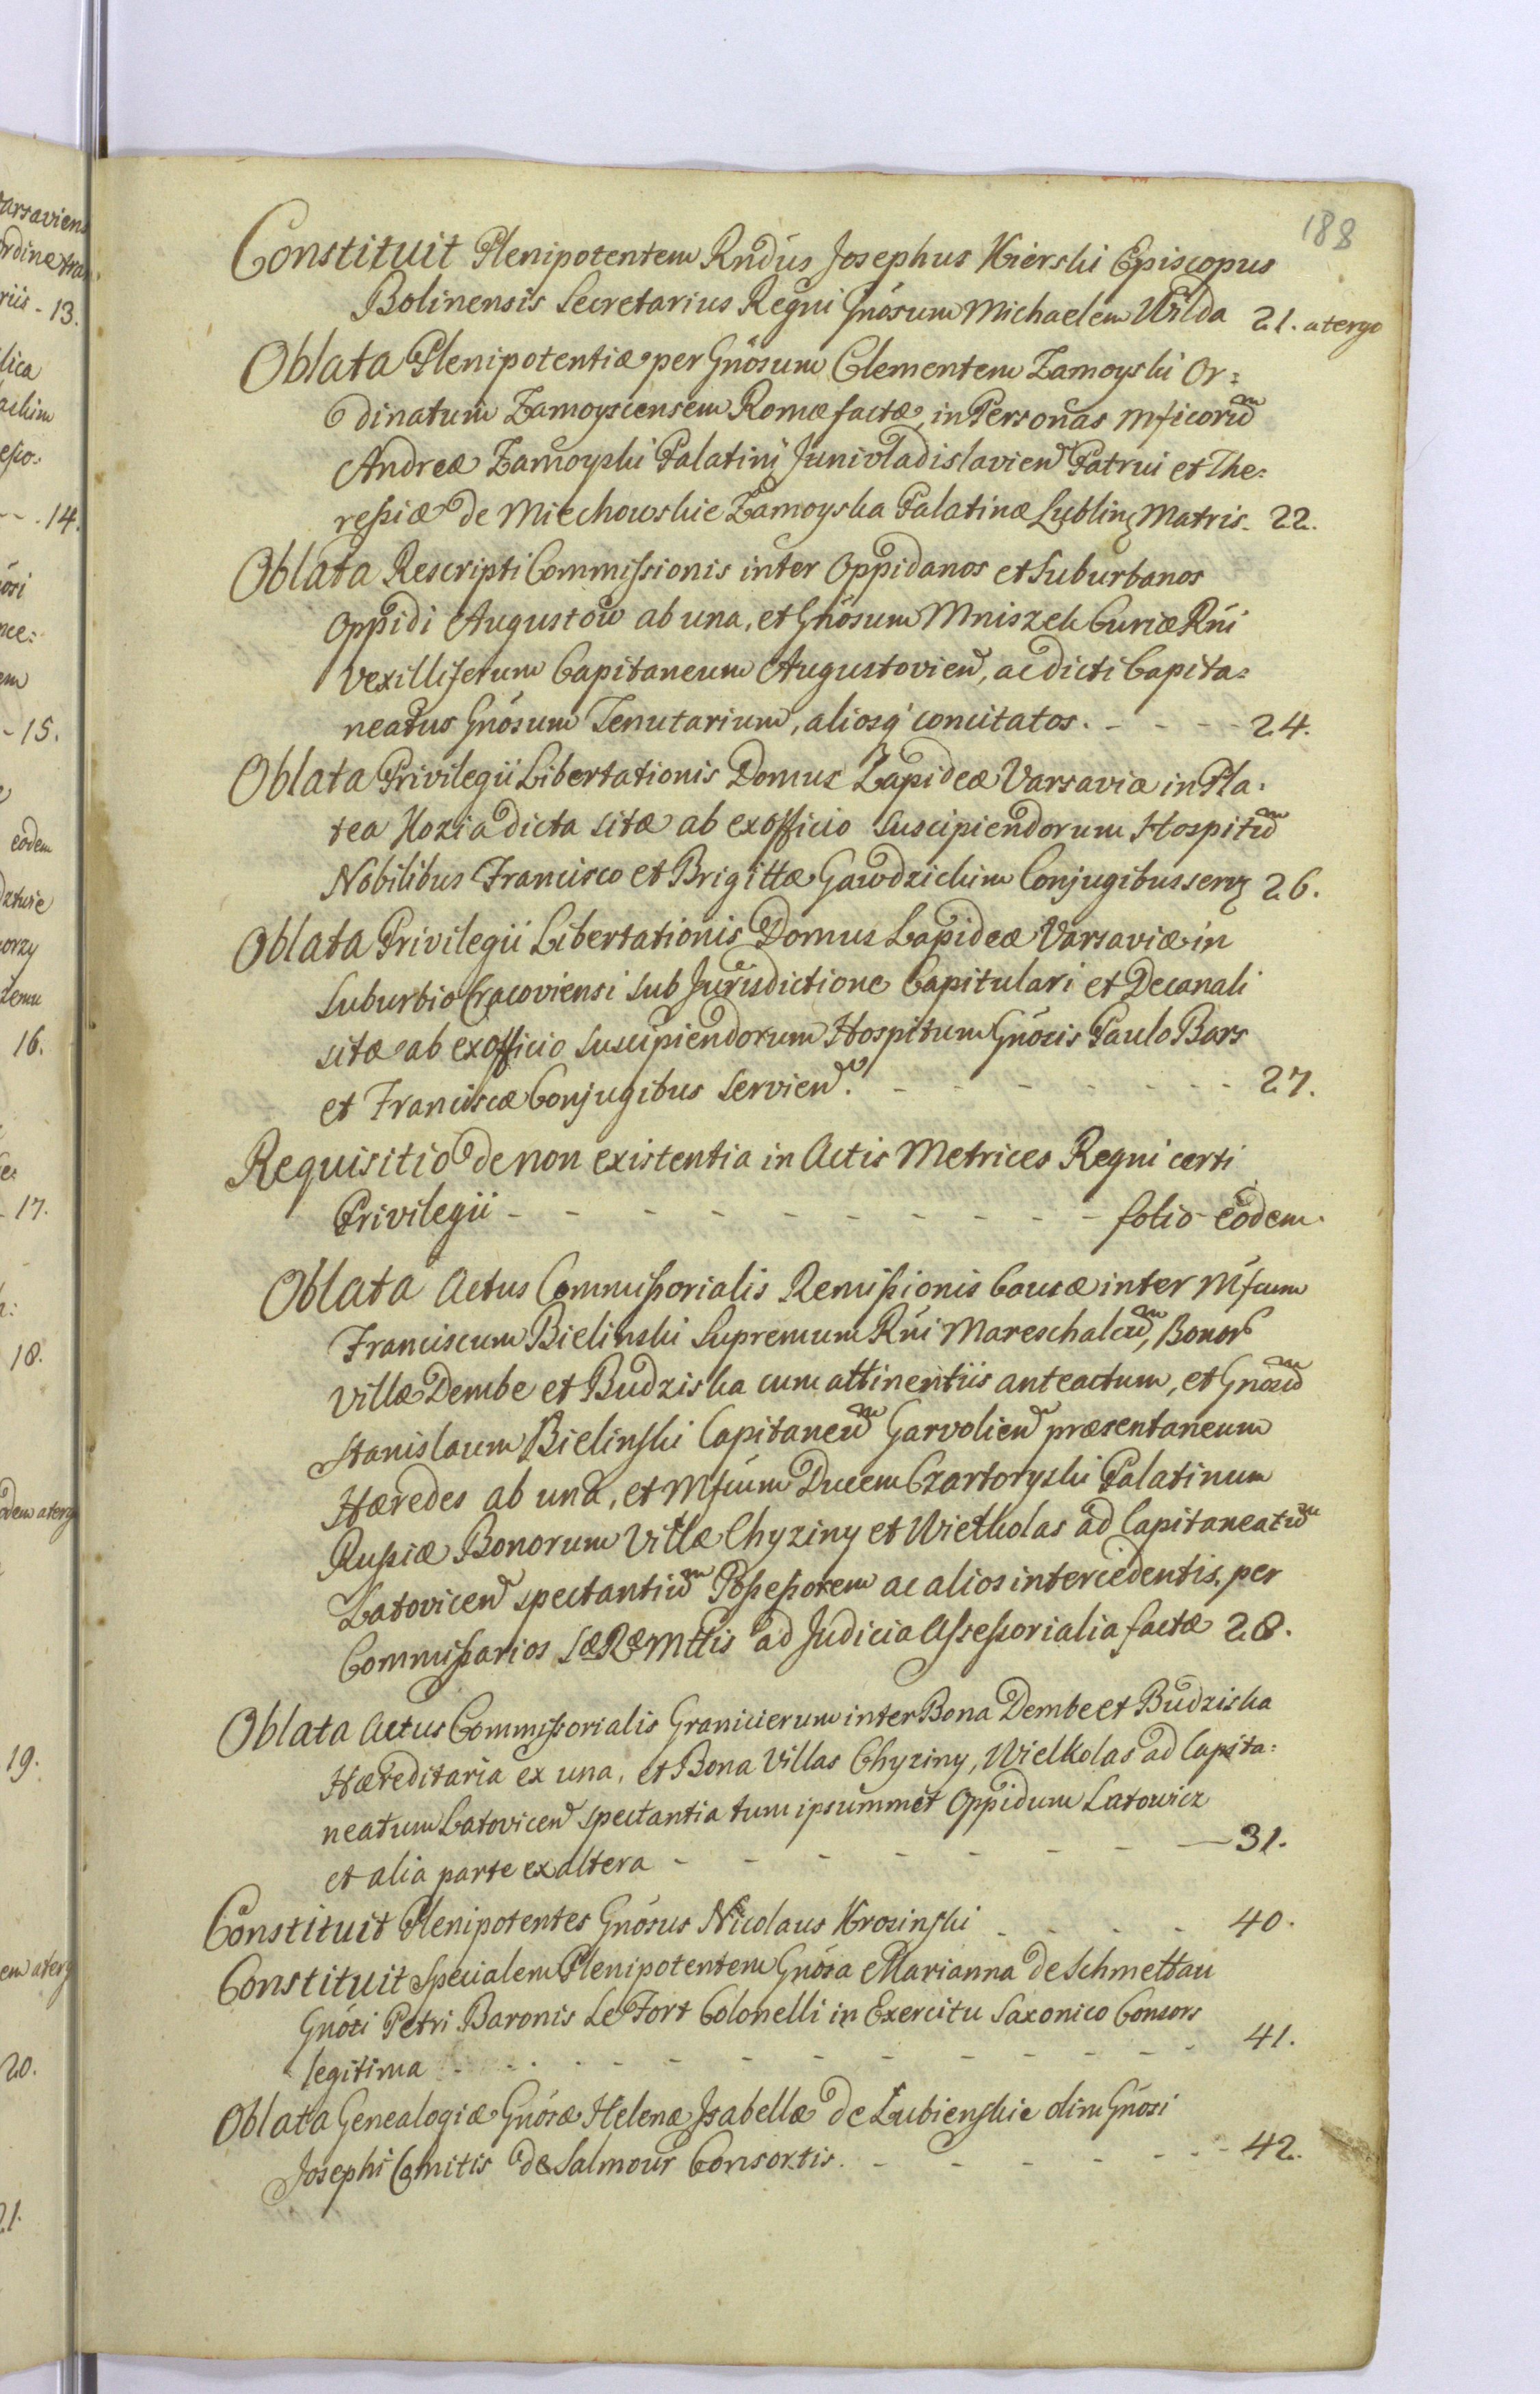 188
Constituit Plenipotentem Rndus Josephus Kierski Episcopus
Bolinensis Secretarius Regni Gnosum Michaelem Wilda 21. atergo
Oblata Plenipotentiæ per Gnosum Clementem Zamoyski Or=
dinatum Zamoyscensem Romæ factæ, in Personas Mficorum
Andreæ Zamoyski Palatini Junivladislavien Patrui et The=
ressiæ de Miechowskie Zamoyska Palatinæ Lublin Matris. 22.
Oblata Rescripti Commissionis inter Oppidanos et Suburbanos
Oppidi Augustow ab una, et Gnosum Mniszek Curiæ Rni
Vexilliferum Capitaneum Augustovien, ac dicti Capita=
neatus Gnosum Tenutarium, aliosq concitatos. - - - - 24.
Oblata Privilegii Libertationis Domus Lapideæ Varsaviæ in Pla=
tea Kozia dicta sitæ ab exofficio suscipiendorum Hospitum
Nobilibus Francisco et Brigittæ Gawdzickim Conjugibus serv 26.
Oblata Privilegii Libertationis Domus Lapideæ Varsaviæ in
Suburbio Cracoviensi sub Jurisdictione Capitulari et Decanali
sitæ ab exofficio suscipiendorum Hospitum Gnosis Paulo Bars
et Franciscæ Conjugibus servien. - - - - - - - 27.
Requisitio de non existentia in Actis Metrices Regni certi
Privilegii - - - - - - - - - - folio eodem.
Oblata Actus Commissorialis Remissionis Causæ inter Mfcum
Franciscum Bielinski Supremum Rni Mareschalcum, Bonor
Villæ Dembe et Budziska cum attinentiis anteactum, et Gnosum
Stanislaum Bielinski Capitaneum Garvolien præsentaneum
Hæredes ab una, et Mfcum Ducem Czartoryski Palatinum
Russiæ Bonorum Villæ Chyziny et Wielkolas ad Capitaneatum
Latovicen spectantium Possessorem ac alios intercedentis, per
Commissarios SæRæMttis ad Judicia Assessorialia factæ 28.
Oblata Actus Commissorialis Granicierum inter Bona Dembe et Budziska
Hæreditaria ex una, et Bona Villas Chyziny, Wielkolas ad Capita=
neatum Latovicen spectantia tum ipsummet Oppidum Latowicz
et alia parte ex altera - - - - - - - - 31.
Constituit Plenipotentes Gnosus Nicolaus Krosinski - - - - 40.
Constituit Specialem Plenipotentem Gnosa Marianna de Schmettau
Gnosi Petri Baronis Le Fort Colonelli in Exercitu Saxonico Consors
legitima - - - - - - - - - - - 41.
Oblata Genealogiæ Gnosæ Helenæ Isabellæ de Łubienskie olim Gnosi
Josephi Comitis de Salmour Consortis. - - - - - - 42.